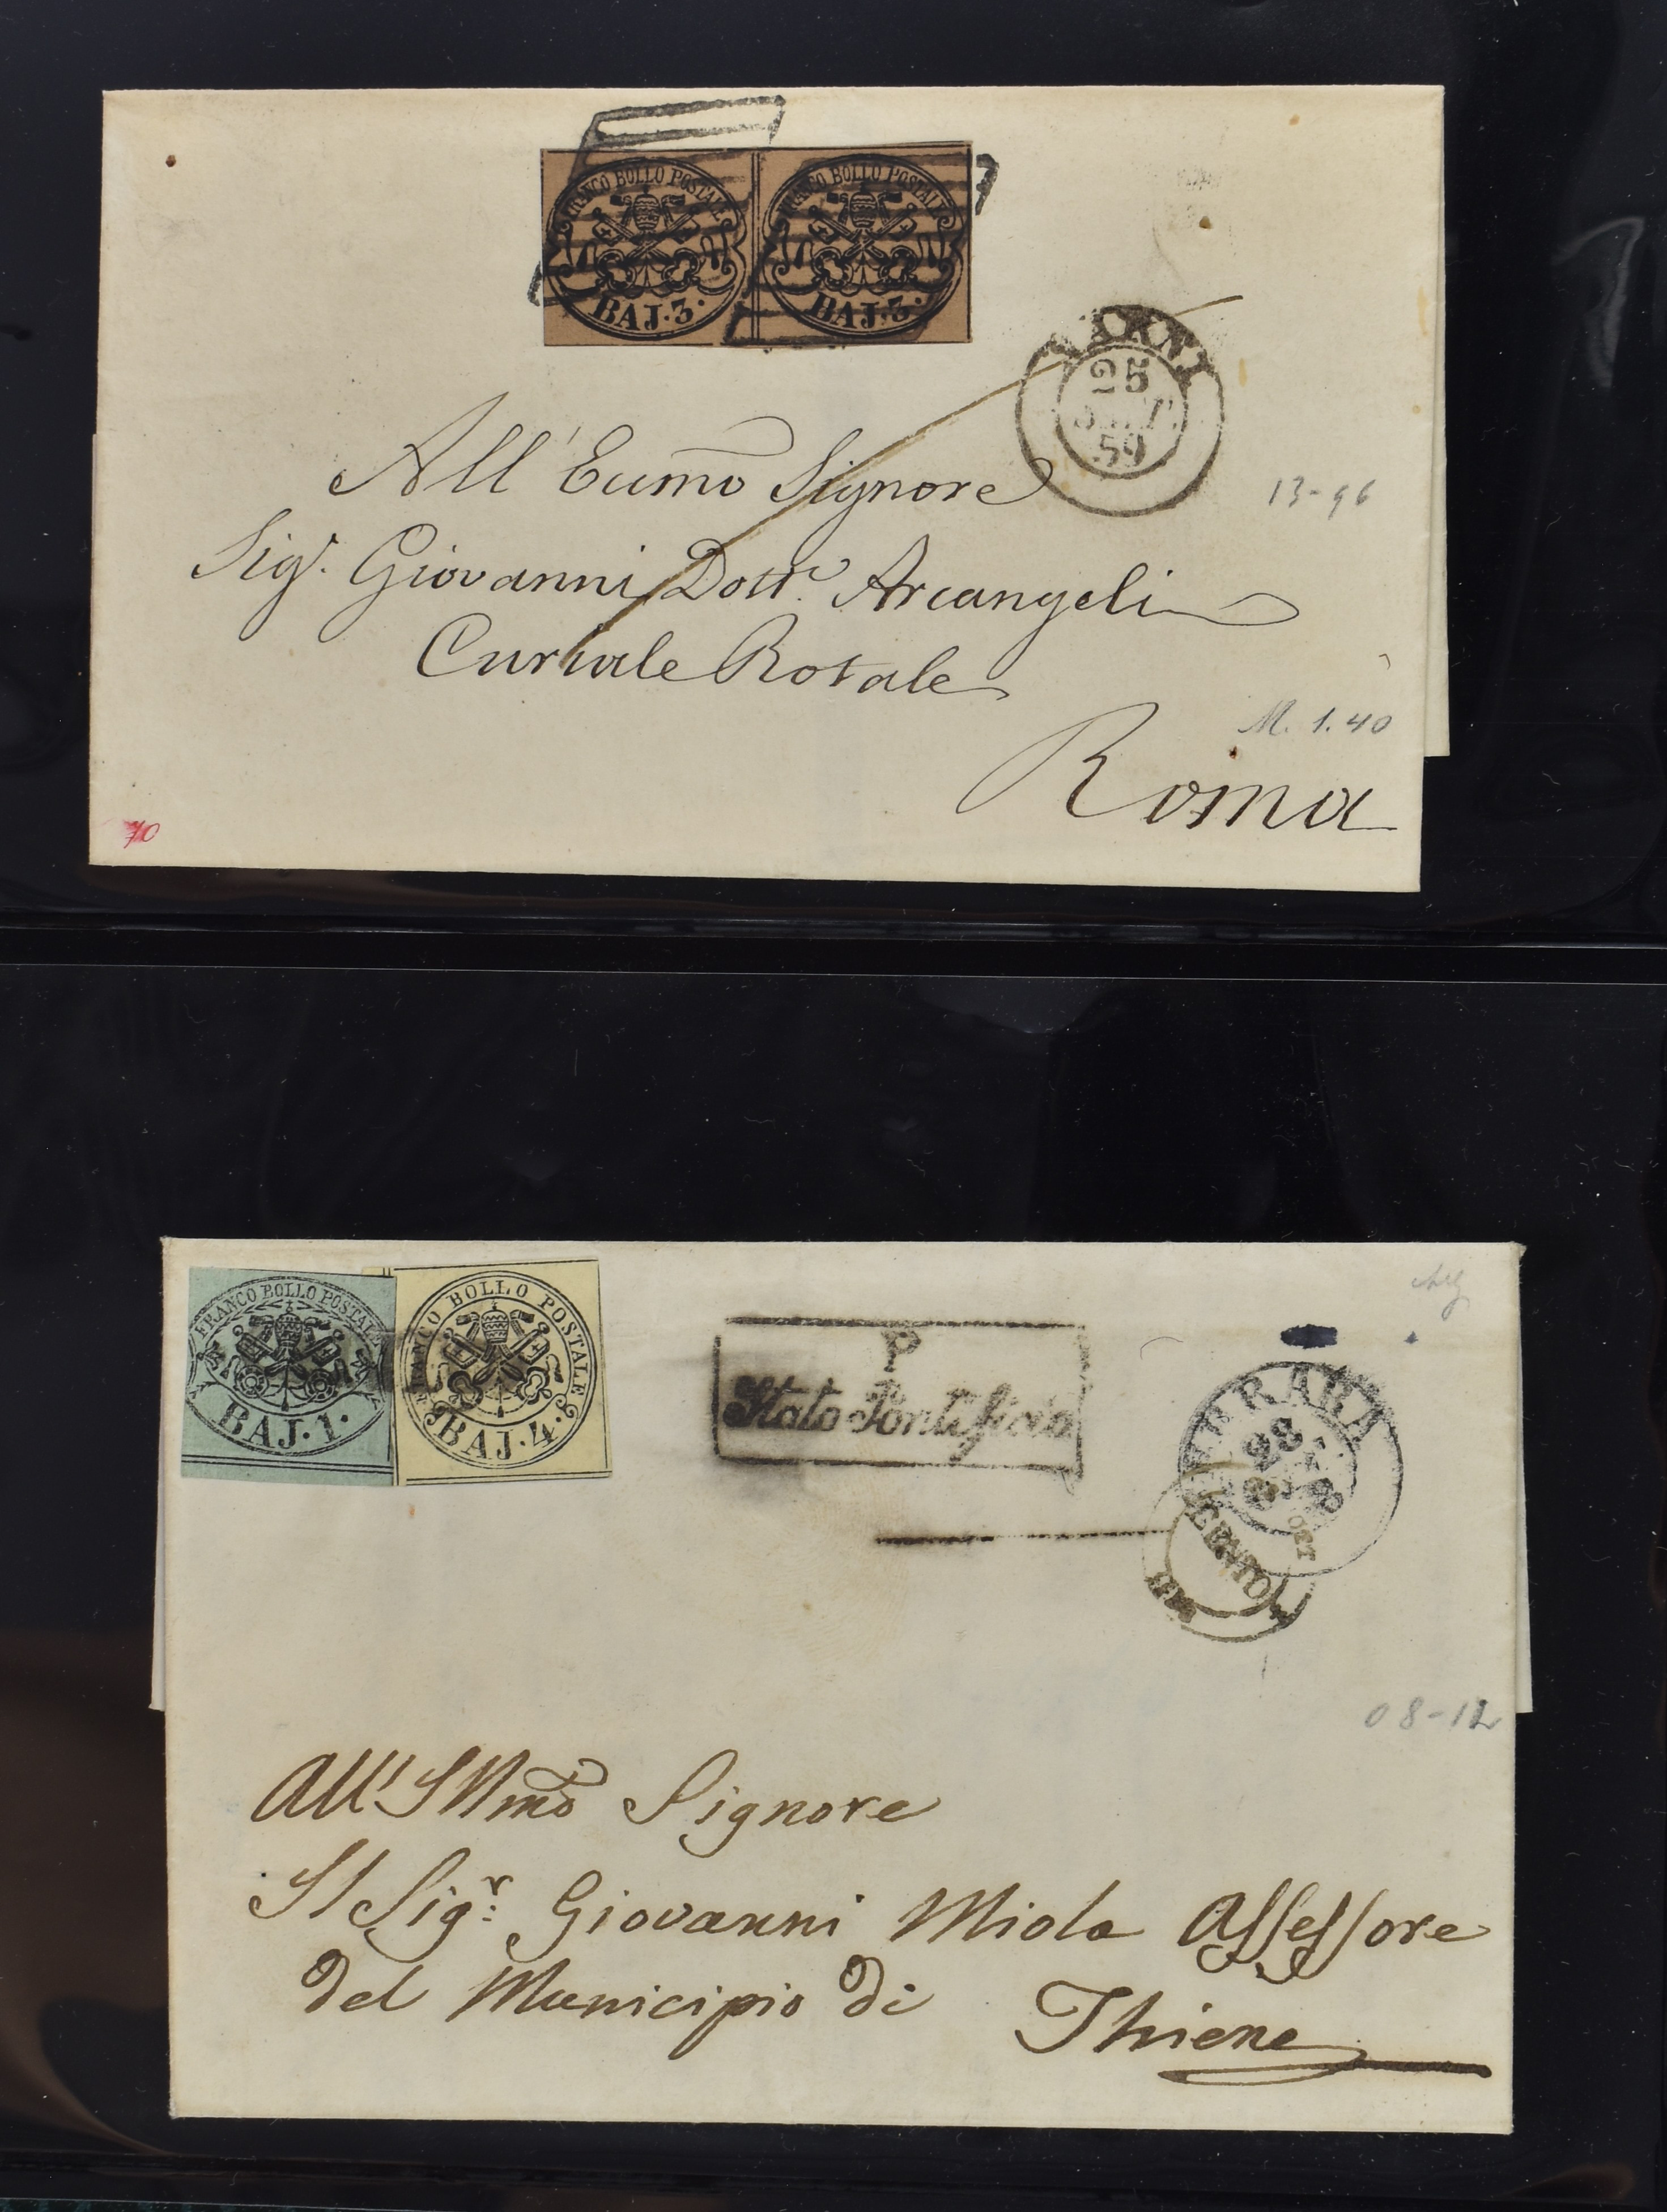 FRANCO BOLLO POSTALE FRANCO BOLLO POSTALE
BAJ. 3. BAJ. 3.
25
SETT.
59
All' Eccmo Signore
13-96
Sigr. Giovanni Dottr. Arcangeli
Curiale Rotale
M. 1.40
Roma
70
FRANCO BOLLO POSTALE FRANCO BOLLO POSTALE
BAJ. 1. BAJ. 4.
P
Stato Pontificio
FERRARA
28
OTT
CENTO
08-12
All' Illmo Signore
Il Sigr: Giovanni Miola Assessore
Del Municipio Di Thiene